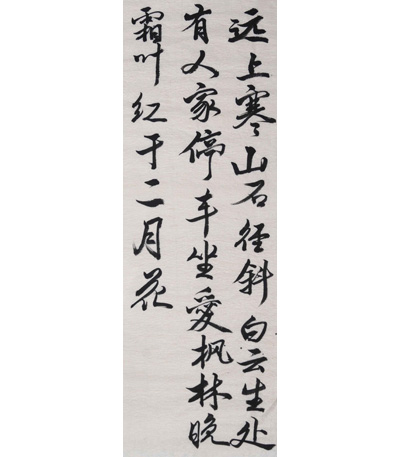 远上寒山石径斜白云生处
有人家停车坐愛枫林晚
霜叶红于二月花